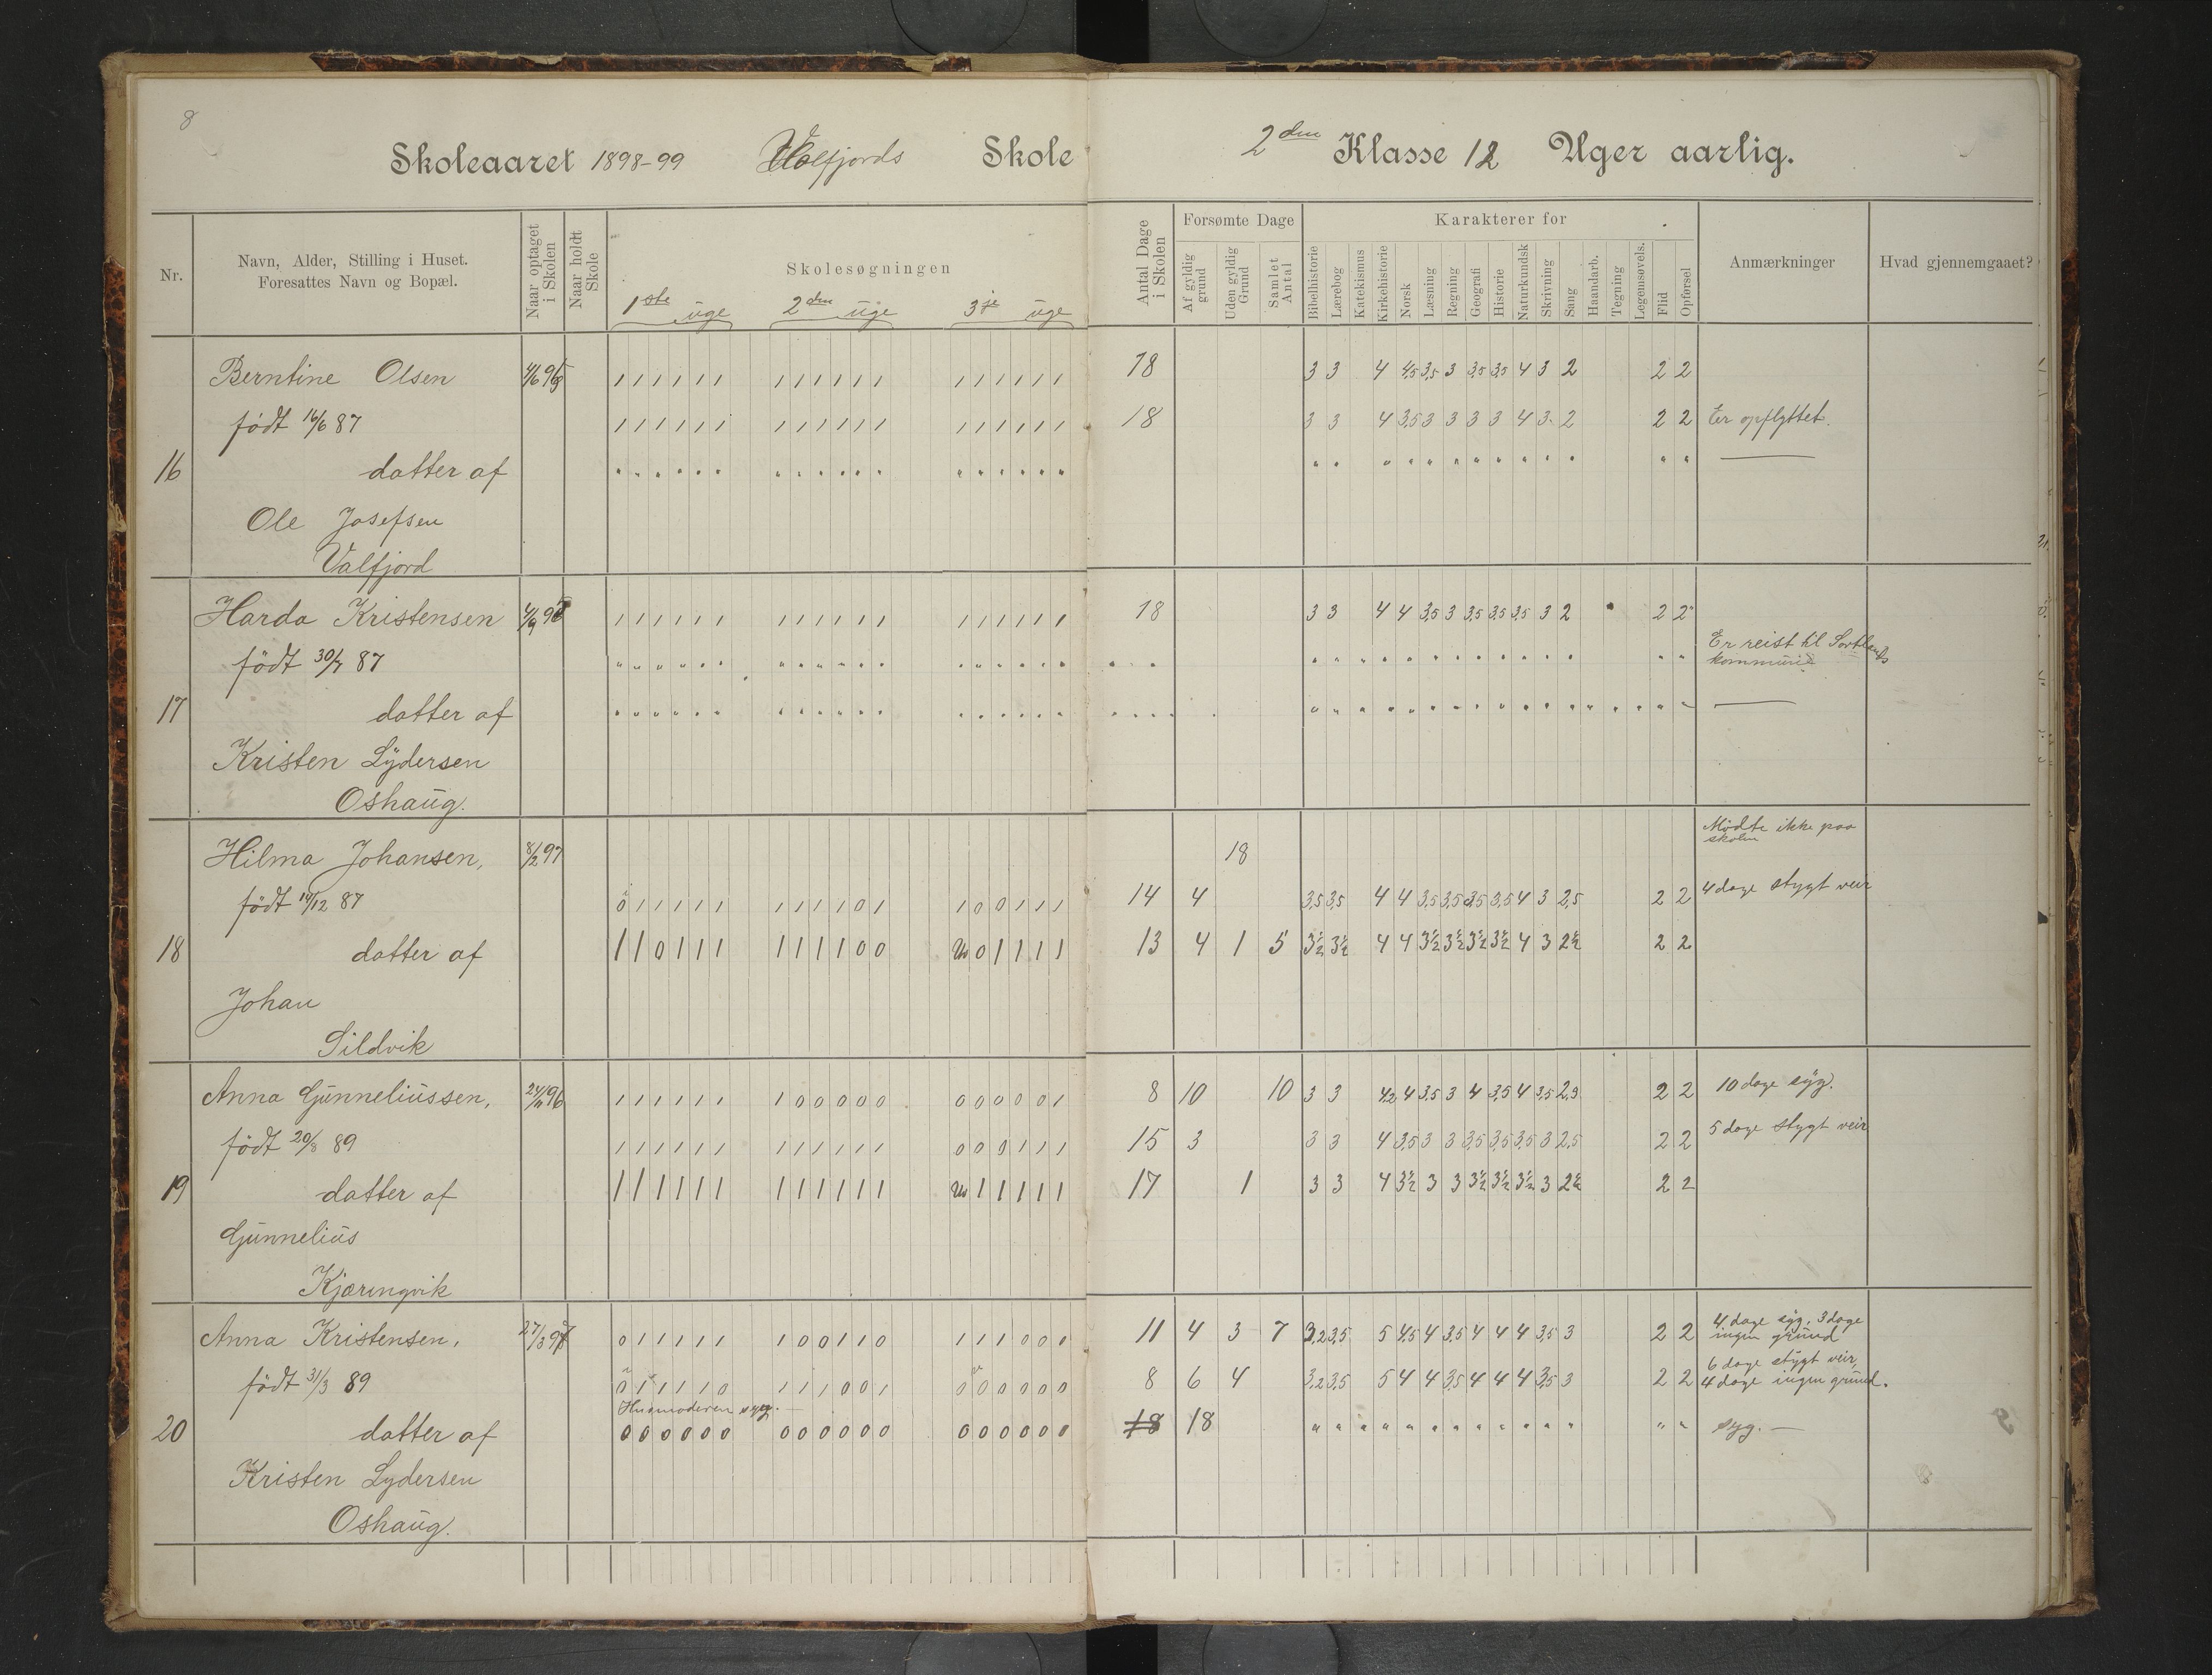 8
Skoleaaret 1898-99 Valfjords Skole
2den Klasse 12 Uger aarlig.
Nr.
Navn, Alder, Stilling i Huset.
Foresattes Navn og Bopæl.
Naar optaget
i Skolen
Naar holdt
Skole
Skolesøgningen
1ste uge 2den uge 3je uge
Antal Dage
i Skolen
Forsømte Dage
Af gyldig
grund
Uden gyldig
Grund
Samlet
Antal
Karakterer for
Bibelhistorie
Lærebog
Katekismus
Kirkehistorie
Norsk
Læsning
Regning
Geografi
Historie
Naturkundsk
Skrivning
Sang
Haandarb.
Tegning
Legemsøvels.
Flid
Opførsel
Anmærkninger
Hvad gjennemgaaet?
16
Berntine Olsen
1 1 1 1 1 1 1 1 1 1 1 1 1 1 1 1 1 1 18 3 3 4 4,5 3,5 3 3,5 3,5 4 3 2 2 2
født 16/6 87 1 1 1 1 1 1 1 1 1 1 1 1 1 1 1 1 1 1 18 3 3 4 3,5 3 3 3 3 4 3 2 2 2 Er opflyttet.
datter af " " " " " " " " " " " " " " " " " "
Ole Josefsen
Valfjord
17
Harda Kristensen 1 1 1 1 1 1 1 1 1 1 1 1 1 1 1 1 1 1 18 3 3 4 4 3,5 3 3,5 3,5 3,5 3 2 2 2
født 30/7 87 " " " " " " " " " " " " " " " " " " Er reist til Sortlands
kommune
datter af " " " " " " " " " " " " " " " " " "
Kristen Lydersen
Oshaug.
18
Hilma Johansen, 8/2 97 18 Mødte ikke paa
skolen
født 19/12 87 0 1 1 1 1 1 1 1 1 1 0 1 1 0 0 1 1 1 14 4 3,5 3,5 4 4 3,5 3,5 3,5 3,5 4 3 2,5 2 2 4 dage stygt veir
datter af 1 1 0 1 1 1 1 1 1 1 0 0 0 1 1 1 1 13 4 1 5 3½ 3½ 4 4 3½ 3½ 3½ 3½ 4 3 2½ 2 2
Johan
Sildvik
19
Anna Gunneliussen, 24/11 96 1 1 1 1 1 1 1 0 0 0 0 0 0 0 0 0 0 1 8 10 10 3 3 4,2 4 3,5 3 4 3,5 4 3,5 2,3 2 2 10 dage syg.
født 20/8 89 1 1 1 1 1 1 1 1 1 1 1 1 0 0 0 1 1 1 15 3 3 3 4 3,5 3 3 3,5 3,5 3,5 3 2,5 2 2 5 dage stygt veir
datter af 1 1 1 1 1 1 1 1 1 1 1 1 1 1 1 1 1 17 1 3 3 4 3½ 3 3 3½ 3½ 3½ 3 2½ 2 2
Gunnelius
Kjæringvik
20
Anna Kristensen, 0 1 1 1 1 1 1 0 0 1 1 0 1 1 1 0 0 0 11 4 3 7 3,2 3,5 5 4,5 4 3,5 4 4 4 3,5 3 2 2 4 dage syg, 3 dage
ingen grund
født 31/3 89 0 1 1 1 1 0 1 1 1 0 0 1 0 0 0 0 0 0 8 6 4 3,2 3,5 5 4 4 3,5 4 4 4 3,5 3 2 2 6 dage stygt veir,
4 dage ingen grund.
Husmoderen syg.
datter af 0 0 0 0 0 0 0 0 0 0 0 0 0 0 0 0 0 0 18 18 " " " " " " " " " " " " " syg.
Kristen Lydersen
Oshaug.